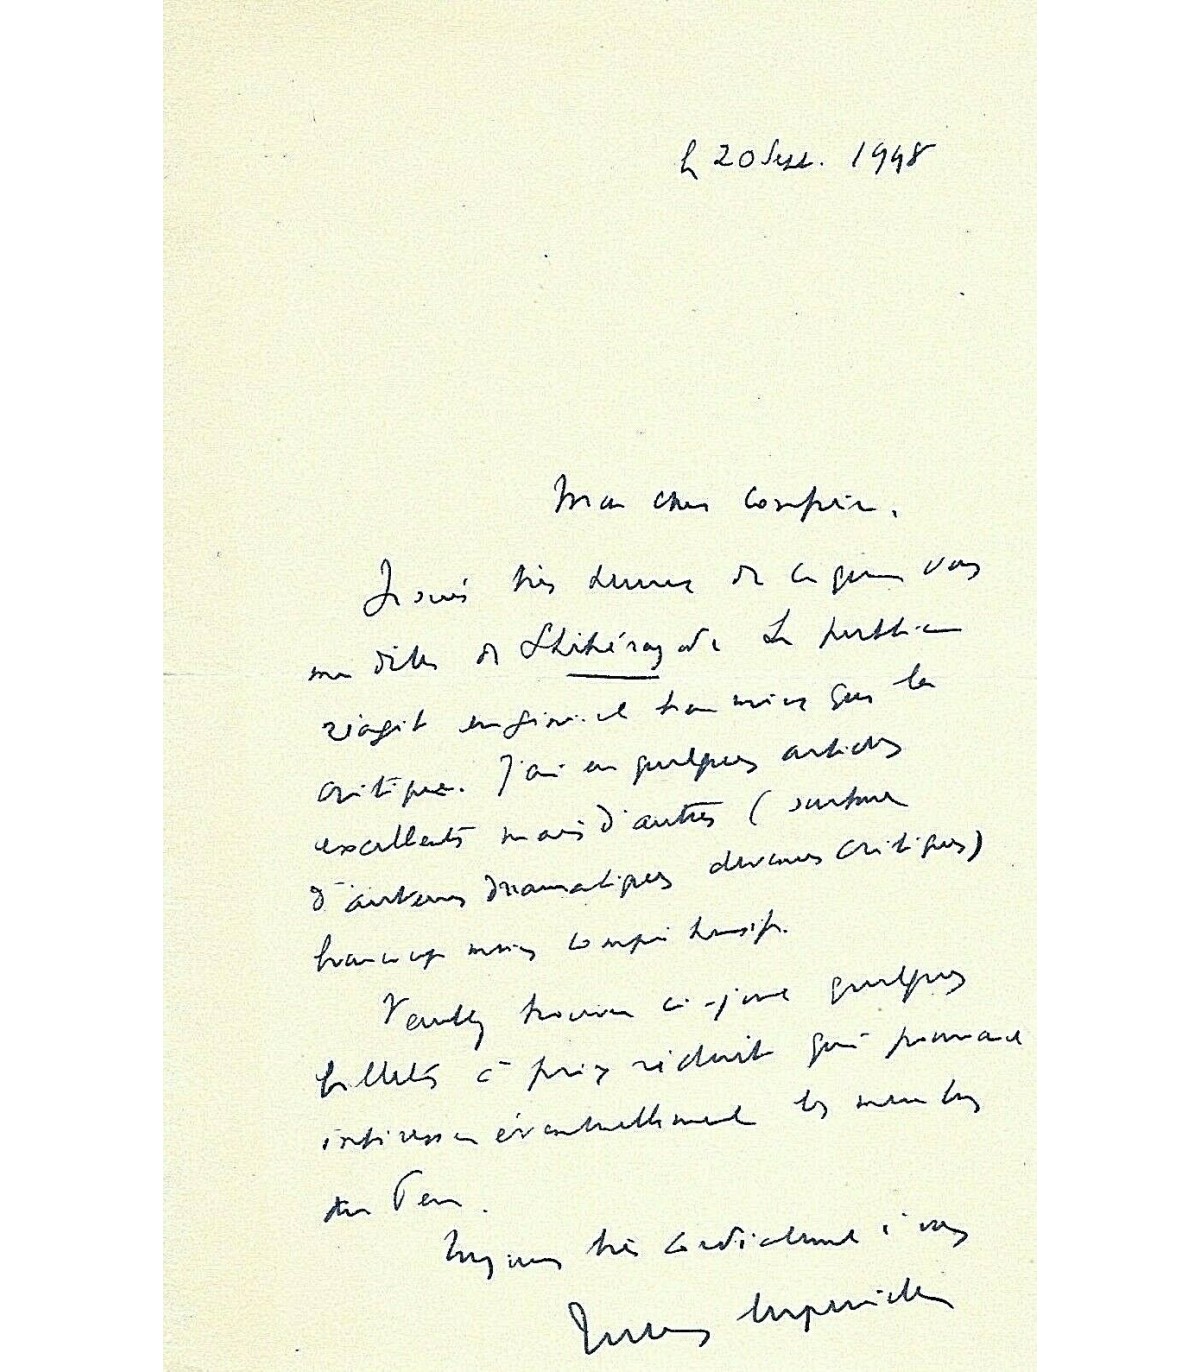 le 20 Sept. 1948
Mon cher Confrère,
Je suis très heureux de ce que vous
me dites de Shéhérazade. Le public
réagit en général bien mieux que la
critique. J'ai eu quelques articles
excellents mais d'autres (surtout
d'auteurs dramatiques devenus critiques)
beaucoup moins compréhensifs.
Veuillez trouver ci-joint quelques
billets à prix réduit qui pourraient
intéresser éventuellement les membres
du Pen.
Croyez moi très cordialement à vous
Jules Supervielle